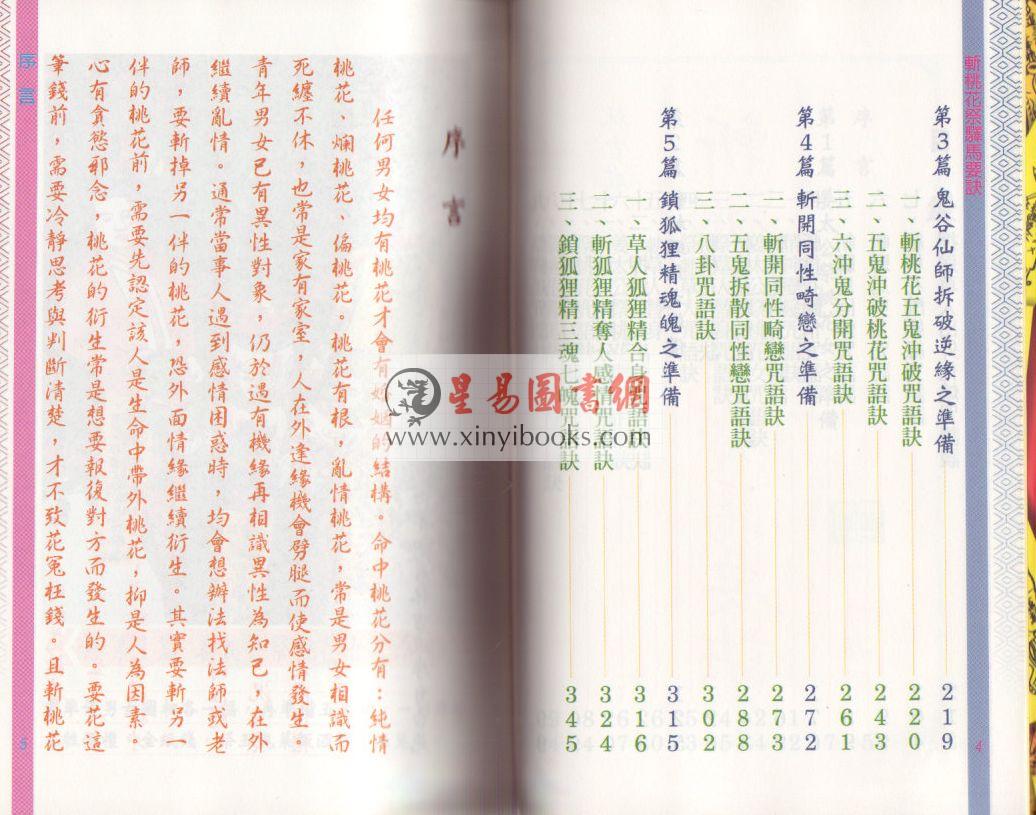 斬桃花祭驛馬要訣
第3篇 鬼谷仙師拆破逆緣之準備 219
一、斬桃花五鬼沖破咒語訣 220
二、五鬼沖破桃花咒語訣 243
三、六沖鬼分開咒語訣 261
第4篇 斬開同性畸戀之準備 272
一、斬開同性畸戀咒語訣 273
二、五鬼拆散同性戀咒語訣 288
三、八卦咒語訣 302
第5篇 鎖狐狸精魂魄之準備 315
一、草人狐狸精合身咒語訣 316
二、斬狐狸精奪人感情咒語訣 344
三、鎖狐狸精三魂七魄咒語訣 345
4
星易圖書網
www.xinyibooks.com
序言
任何男女均有桃花才會有婚姻的結構。命中桃花分有：純情
桃花、爛桃花、偏桃花。桃花有根，亂情桃花，常是男女相識而
死纏不休，也常是家有家室，人在外逢緣機會劈腿而使感情發生。
青年男女已有異性對象，仍於過有機緣再相識異性為知己，在外
繼續亂情。通常當事人遇到感情困惑時，均會想辦法找法師或老
師，要斬掉另一伴的桃花，恐外面情緣繼續衍生。其實要斬另一
伴的桃花前，需要先認定該人是生命中帶外桃花，抑是人為因素。
心有貪慾邪念，桃花的衍生常是想要報復對方而發生的。要花這
筆錢前，需要冷靜思考與判斷清楚，才不致花冤枉錢。且斬桃花
序言
5